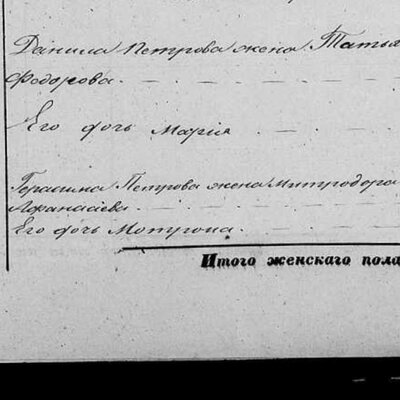 Данила Петрова жена Татья
Федорова.
Его дочь Марія
Герасима Петрова жена Митродора
Афанасіева.
Его дочь Мотрона.
Итого женскаго пола